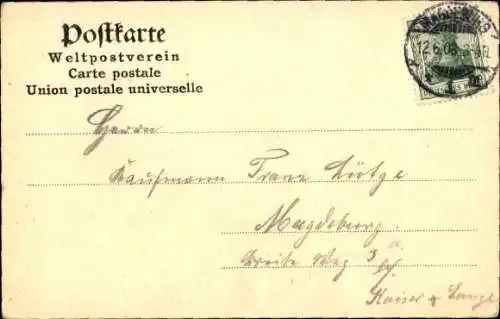 Postkarte
Weltpostverein
Carte postale
Union postale universelle
12.6.05
Herrn
Kaufmann Franz Lütge
Magdeburg.
Breite Weg 3 a.
bei
Kaiser & Lange